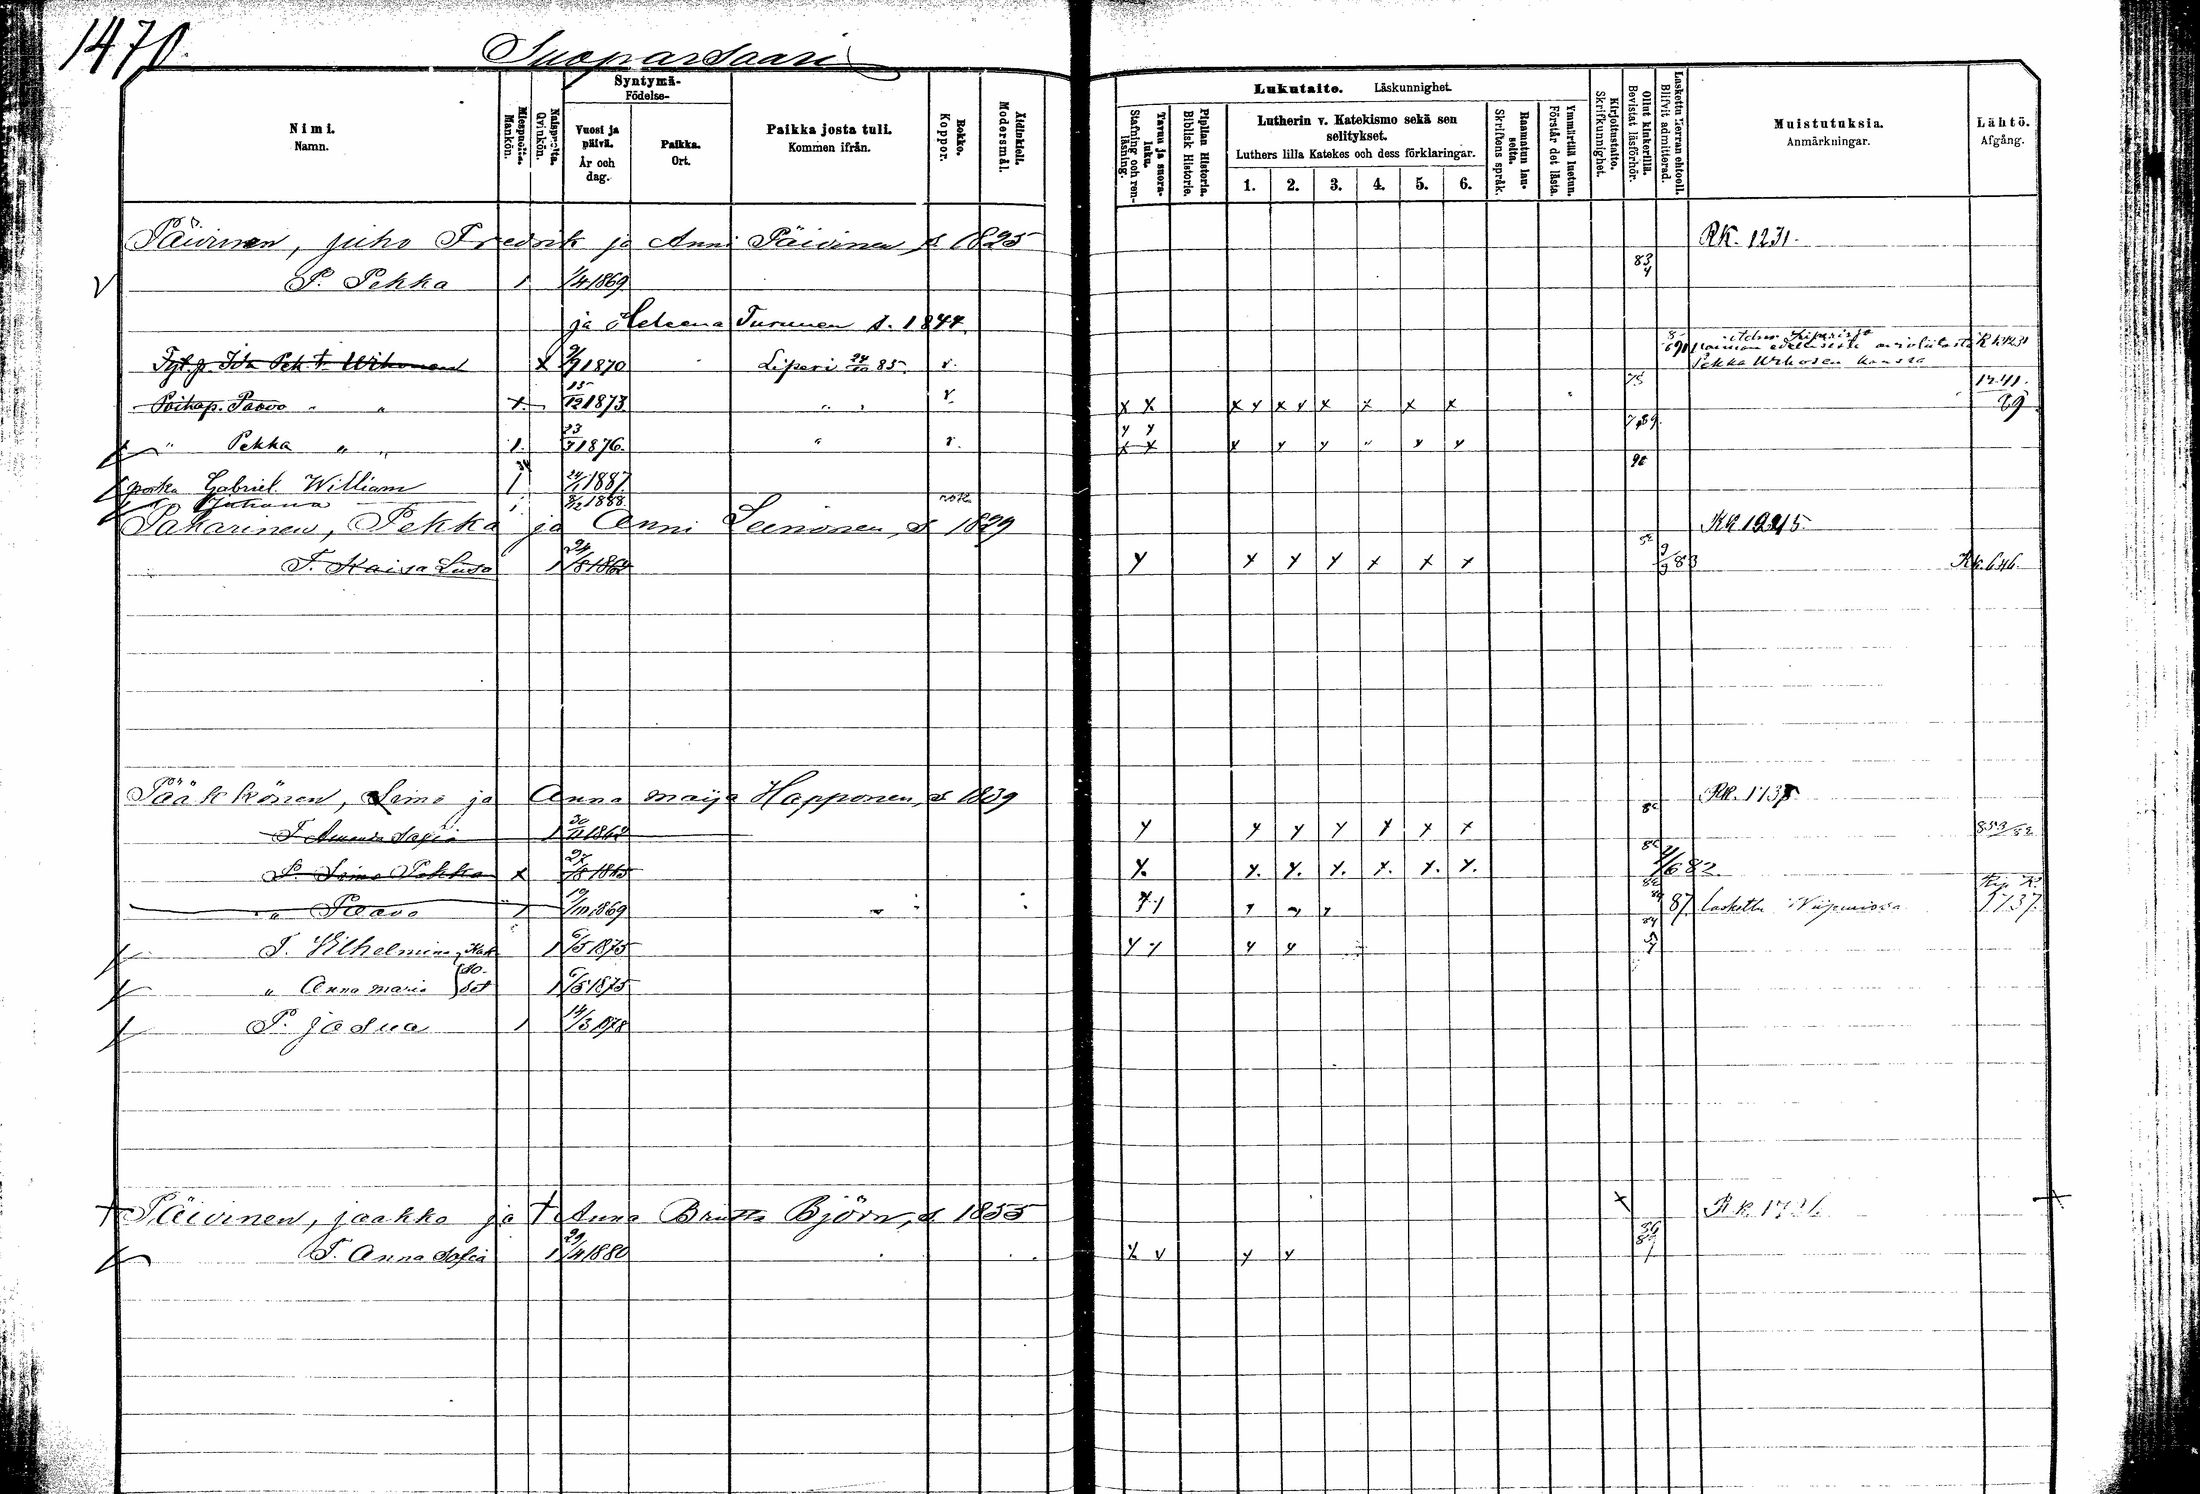 1470.
Suoparsaari
Nimi.
Namn.
Miespuolia.
Mankön.
Naispuolta.
Qvinkön.
Syntymä-
Födelse-
Vuosi ja päivä.
År och dag.
Paikka.
Ort.
Paikka josta tuli.
Kommen ifrån.
Rokko.
Koppor.
Äidinkieli.
Modersmål.
Lukutaito. Läskunnighet.
Tavau ja suora-luku.
Stafning och ren-läsning.
Piplian Historia.
Biblisk Historie.
Lutherin v. Katekismo sekä sen selitykset.
Luthers lilla Katekes och dess förklaringar.
1. 2. 3. 4. 5. 6.
Raamatun lau-seita.
Skriftens språk.
Ymmärtää luetun.
Förstår det lästa.
Kirjoitustaito.
Skrifkunnighet.
Ollut kinkerillä.
Bevistat läsförhör.
Laskettu Herran ehtooll.
Blifvit admitterad.
Muistutuksia.
Anmärkningar.
Lähtö.
Afgång.
Päivinen, juho Fredrik ja Anni Päivinen, s. 1825 RK. 1231.
P. Pekka 1 1/4 1869 83 4
ja Heleena Turunen s. 1844.
Tyt. p. Ida Pek. t. Wihonen x 9/9 1870 Liperi 24/10 85. r. Pekka Wihosen kanssa
Poikap. Paavo " " x. 15/12 1873 " " r. x x x y x y x x x x 75 1241. 89
" Pekka " " 1. 23/3 1876. " r. x x x y y " y y
poika Gabriel William 1 24/1 1887. 90
" Juhana 1 8/12 1888. rok.
Pakarinen, Pekka ja Anni Leinonen, s. 1829 RK 1245
T. Kaisa Lusa 1 24/8 1864 y y y y x x x 9/9 83 Rk. 646.
Pääkkönen, Simo ja Anna maija Happonen, s. 1839 RK. 1137
T. Amanda Sofia 1 30/11 1862 y y y y y y x 853/82
P. Simo Pekka x 27/8 1865 y. y. y. y. y. y. y. 4/6 82.
" Paavo 1 19/10 1869 87. Laskettu Wiipurissa Rip. K. 1137.
T. Wilhelmina Kak 1 6/5 1875 y y y y
" Anna maria so-set 1 6/5 1875
P. josua 1 14/3 1878
+ Päivinen, jaakko ja + Anna Britta Björn, s. 1855 +
T. Anna Sofia 1 29/4 1880 x v y y 86 87